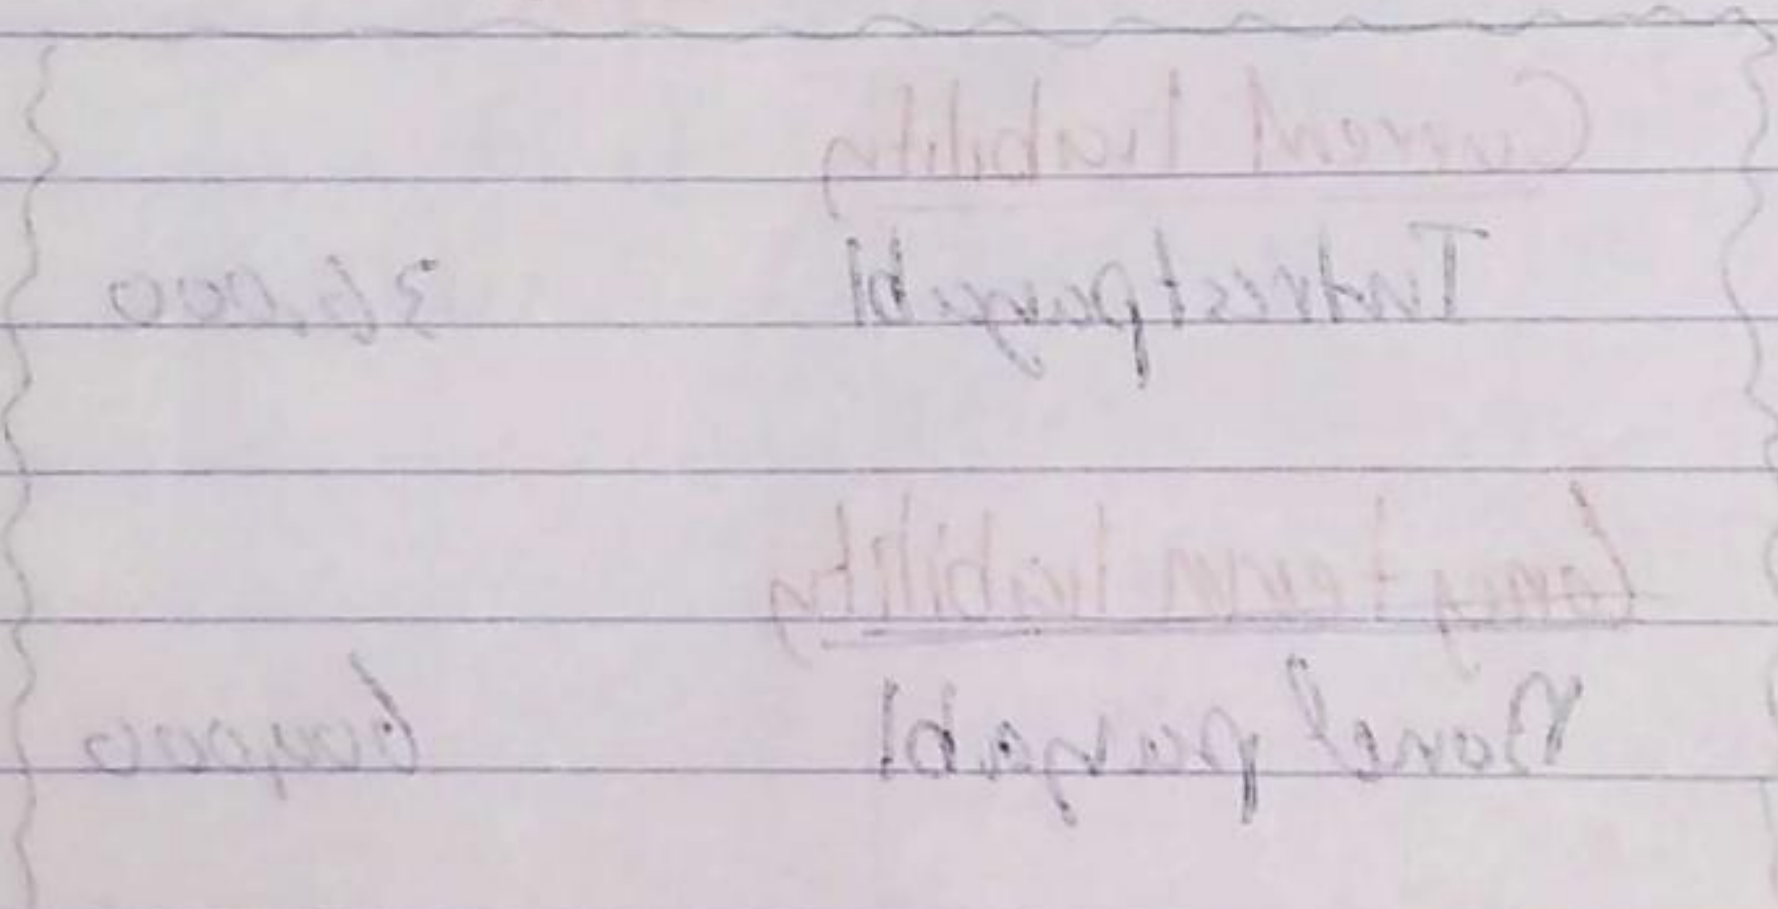 Current liability
Intrest payabl 36,000
Long term liability
Bond payabl 600,000